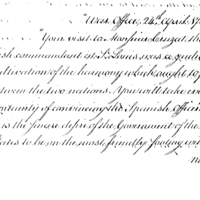 "War Office, 24th April, 17
"Your visit to Monsieur Cruzat, the
ish commandant at St. Louis was a
ultivation of the harmony which ought to
tween the two nations. You will take eve
ortunity of convincing the Spanish Office
is the sincere desire of the Government of the
ates to be on the most friendly footing wi